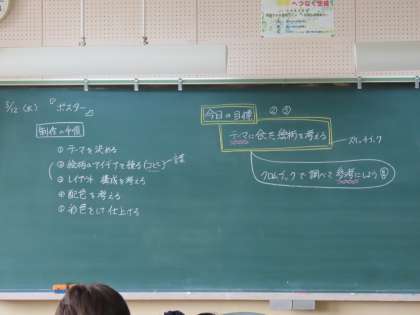 3/12(火)『ポスター』
制作の手順
① テーマを決める
② 絵柄のアイデアを練る(コピー)
③ レイアウト 構成を考える
④ 配色を考える
⑤ 彩色をして仕上げる
今日の目標 ②③
テーマに合った絵柄を考える
スケッチブック
クロムブックで調べて参考にしよう